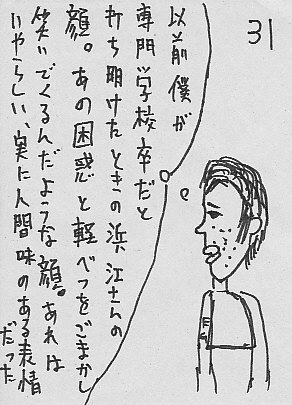 31
以前僕が
専門学校卒だと
打ち明けたときの浜江さんの
顔。あの困惑と軽べつをごまかし
笑いでくるんだような顔。あれは
いやらしい、実に人間味のある表情
だった